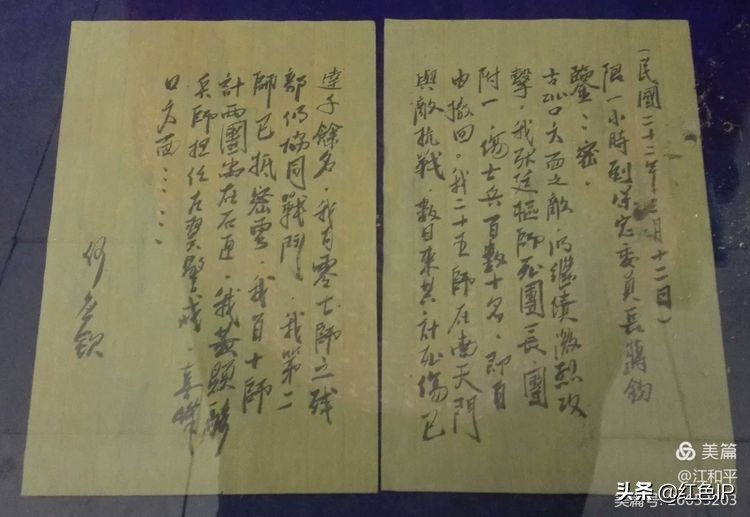 (民國二十二年三月十二日)
限一小時到保定委員長蔣鈞
鑒:密.
古北口方面之敵,仍繼續激烈攻
擊,我張廷樞師死團長、團
附一,傷士兵百數十名,即自
由撤回。我二十五師在南天門
與敵抗戰,數日來共計死傷已
達千餘名,我百零七師之残
部仍協同戰鬥,我第二
師已抵密雲,我百十師
計兩團尚在石匣,我黃顯
兵師担任左翼警戒,喜峰
口方面……
何应钦
美篇
@江和平
头条@红色IP
美篇号: